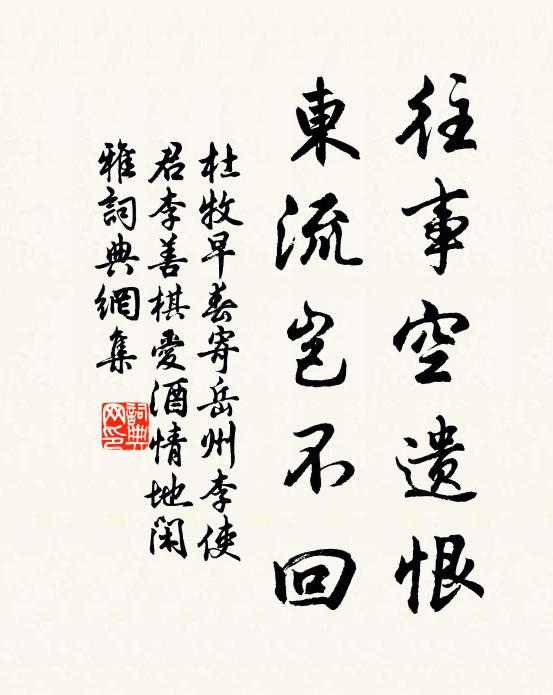 往事空遺恨
東流豈不回
杜牧早春寄岳州李使
君李善棋愛酒情地閑
雅詞典網集
詞典
网印